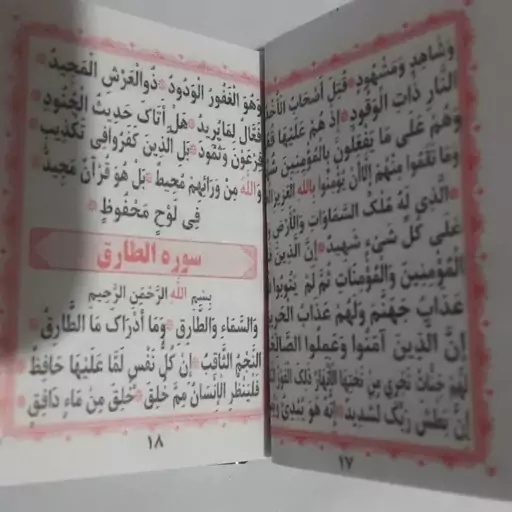 وَشَاهِدٍ وَمَشْهُودٍ * قُتِلَ أَصْحَابُ
النَّارِ ذَاتِ الْوَقُودِ * إِذْ هُمْ عَلَيْهَا
وَهُمْ عَلَى مَا يَفْعَلُونَ بِالْمُؤْمِنِينَ
وَمَا نَقَمُوا مِنْهُمْ إِلَّا أَنْ يُؤْمِنُوا بِاللهِ الْعَزِيزِ
* الَّذِي لَهُ مُلْكُ السَّمَاوَاتِ وَالْأَرْضِ
عَلَى كُلِّ شَيْءٍ شَهِيدٌ * إِنَّ الَّذِينَ
الْمُؤْمِنِينَ وَالْمُؤْمِنَاتِ ثُمَّ لَمْ يَتُوبُوا
عَذَابُ جَهَنَّمَ وَلَهُمْ عَذَابُ
إِنَّ الَّذِينَ آمَنُوا وَعَمِلُوا
لَهُمْ جَنَّاتٌ تَجْرِي مِنْ تَحْتِهَا الْأَنْهَارُ ذَلِكَ
إِنَّ بَطْشَ رَبِّكَ لَشَدِيدٌ * إِنَّهُ هُوَ يُبْدِئُ
١٧
وَهُوَ الْغَفُورُ الْوَدُودُ * ذُو الْعَرْشِ الْمَجِيدُ *
فَعَّالٌ لِمَا يُرِيدُ * هَلْ أَتَاكَ حَدِيثُ الْجُنُودِ *
فِرْعَوْنَ وَثَمُودَ * بَلِ الَّذِينَ كَفَرُوا فِي تَكْذِيبٍ *
وَاللهُ مِنْ وَرَائِهِمْ مُحِيطٌ * بَلْ هُوَ قُرْآنٌ مَجِيدٌ *
فِي لَوْحٍ مَحْفُوظٍ *
سوره الطارق
بِسْمِ اللهِ الرَّحْمَنِ الرَّحِيمِ
وَالسَّمَاءِ وَالطَّارِقِ * وَمَا أَدْرَاكَ مَا الطَّارِقُ *
النَّجْمُ الثَّاقِبُ * إِنْ كُلُّ نَفْسٍ لَمَّا عَلَيْهَا حَافِظٌ *
فَلْيَنْظُرِ الْإِنْسَانُ مِمَّ خُلِقَ * خُلِقَ مِنْ مَاءٍ دَافِقٍ *
١٨